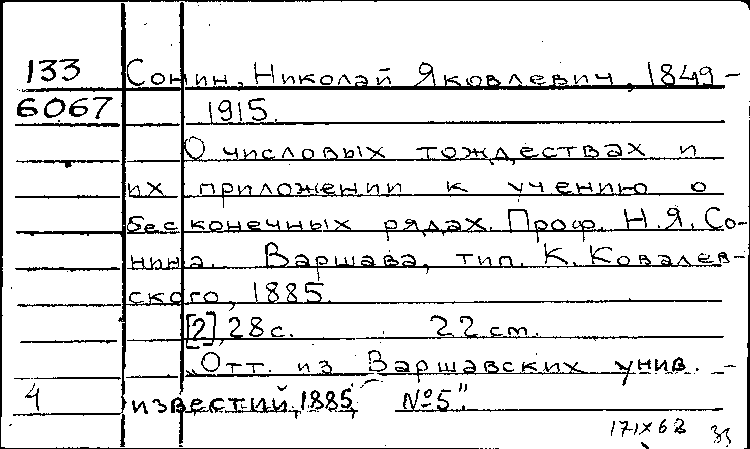 133 Сонин, Николай Яковлевич, 1849-
6067 1915.
О числовых тождествах и
их приложении к учению о
бесконечных рядах. Проф. Н.Я. Со-
нина. Варшава, тип. К. Ковалев-
ского, 1885.
[2], 28 с. 22 см.
„Отт. из Варшавских унив.
4 известий, 1885, № 5".
171х62